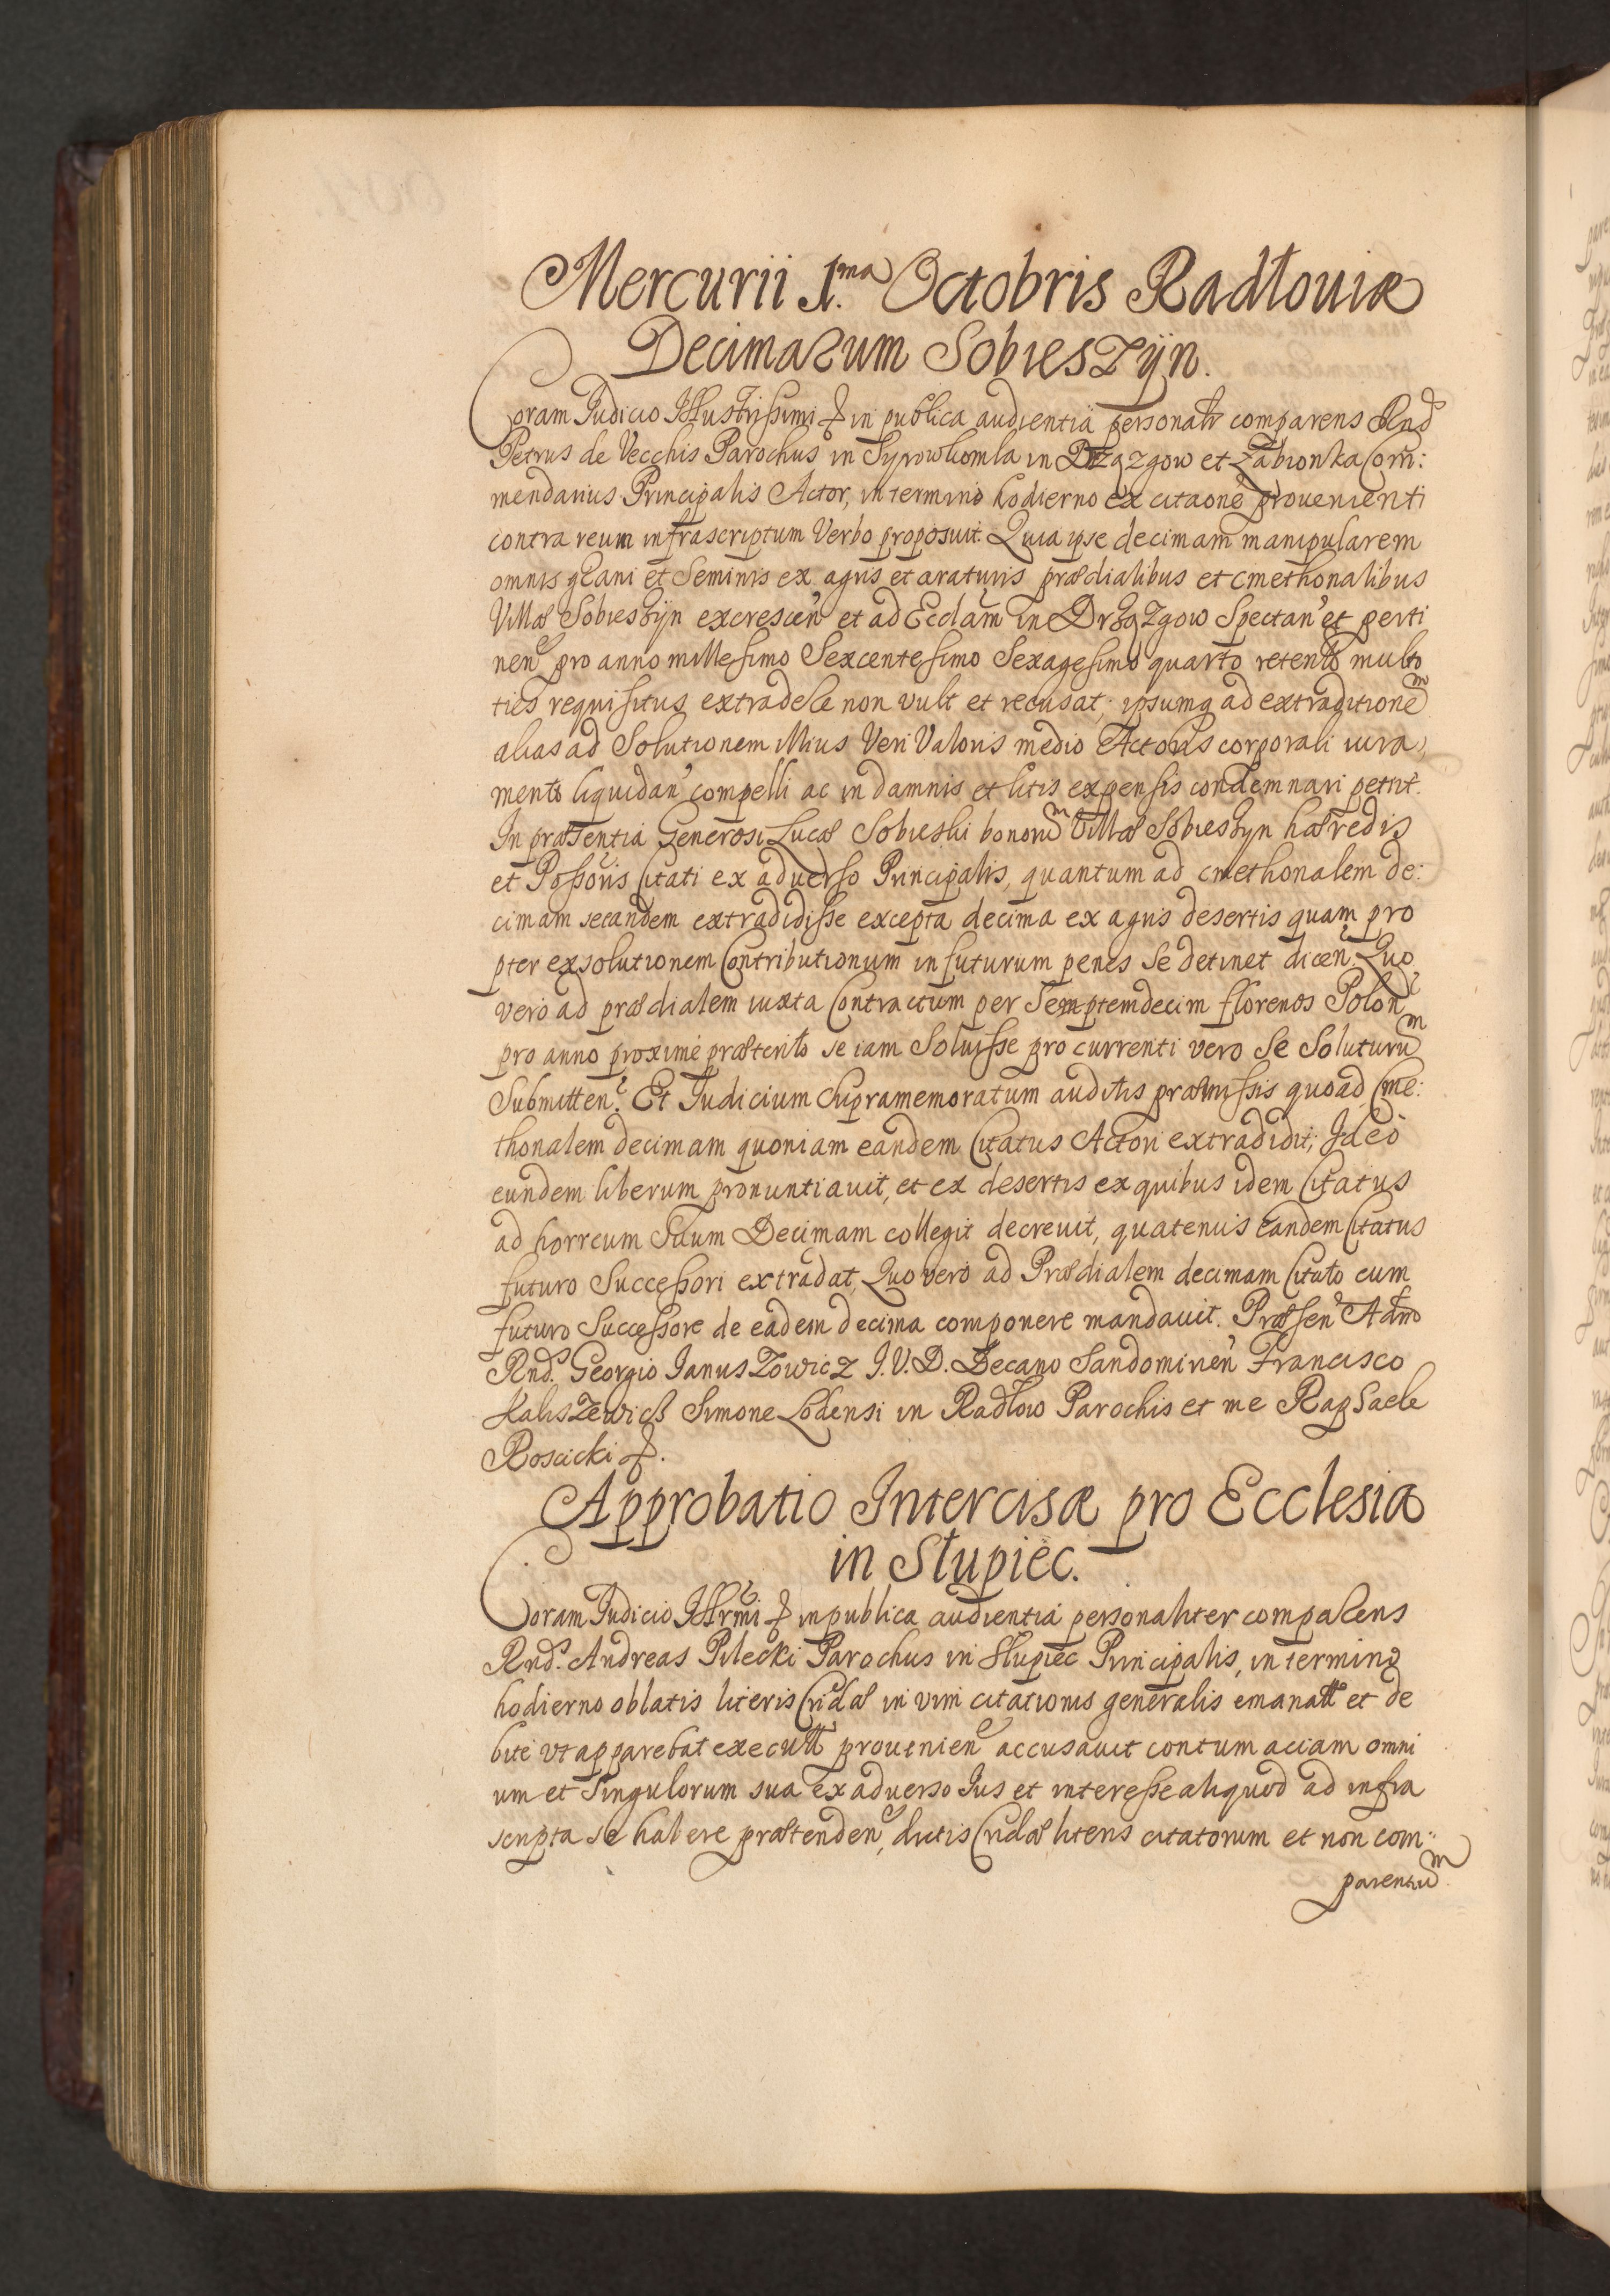 Mercurii 1.ma Octobris Radłoviæ
Decimarum Sobieszÿn.
Coram Iudicio Illustrissimi & in publica audientia personalr comparens Rnd
Petrus de Vecchis Parochus in Syrowliomla in Drzązgow et Zabionka Com̄:
mendarius Principalis Actor, in termino hodierno ex citaone prouenienti
contra reum infrascriptum Verbo proposuit. Quia ipse decimam manipularem
omnis grani et Seminis ex agris et araturis prædialibus et cmethonalibus
Villæ Sobieszÿn excrescen et ad Eccl̄am in Drzązgow Spectan et perti
nen pro anno millesimo Sexcentesimo Sexagesimo quarto retento multo
ties requisitus extradere non vult et recusat; ipsumq ad extraditionem
alias ad Solutionem illius Veri Valoris medio Actoris corporali iura
mento liquidan compelli ac in damnis et litis expensis condemnari petiit.
In præsentia Generosi Lucæ Sobieski bonorum Villæ Sobieszyn hæredis
et Possoris Citati ex adverso Principalis, quantum ad cmethonalem de:
cimam secandem extradidisse excepta decima ex agris desertis quam pro
pter exsolutionem Contributionum in futurum penes se detinet dicen. Quo
vero ad prædialem iuxta Contractum per Semptemdecim florenos Polon
pro anno proxime præterito se iam Soluisse pro currenti vero Se Soluturum
Submitten. Et Iudicium Supramemoratum auditis præmissis quoad Cme:
thonalem decimam quoniam eandem Citatus Actori extradidit; Ideo
eundem liberum pronuntiauit, et ex desertis ex quibus idem Citatus
ad horreum Suum Decimam collegit decreuit, quatenus eandem Citatus
futuro Successori extradat, Quo vero ad Prædialem decimam Citato cum
futuro Successore de eadem decima componere mandauit. Præsen Adm
Rnd. Georgio Ianuszowicz I. V. D. Decano Sandomirien Francisco
Kaliszewicz Simone Lodensi in Radłow Parochis et me Raphaele
Roscicki &.
Approbatio Intercisæ pro Ecclesia
in Słupiec.
Coram Iudicio Illrmi & in publica audientia personaliter comparens
Rnd. Andreas Pilecki Parochus in Słupiec Principalis, in termino
hodierno oblatis literis Cridæ in vim citationis generalis emanatt et de
bite vt apparebat executt prouenien accusauit contumaciam omni
um et Singulorum sua ex aduerso Ius et interesse aliquod ad infra
scripta se habere prætenden, dictis Cridæ literis citatorum et non com:
parentium